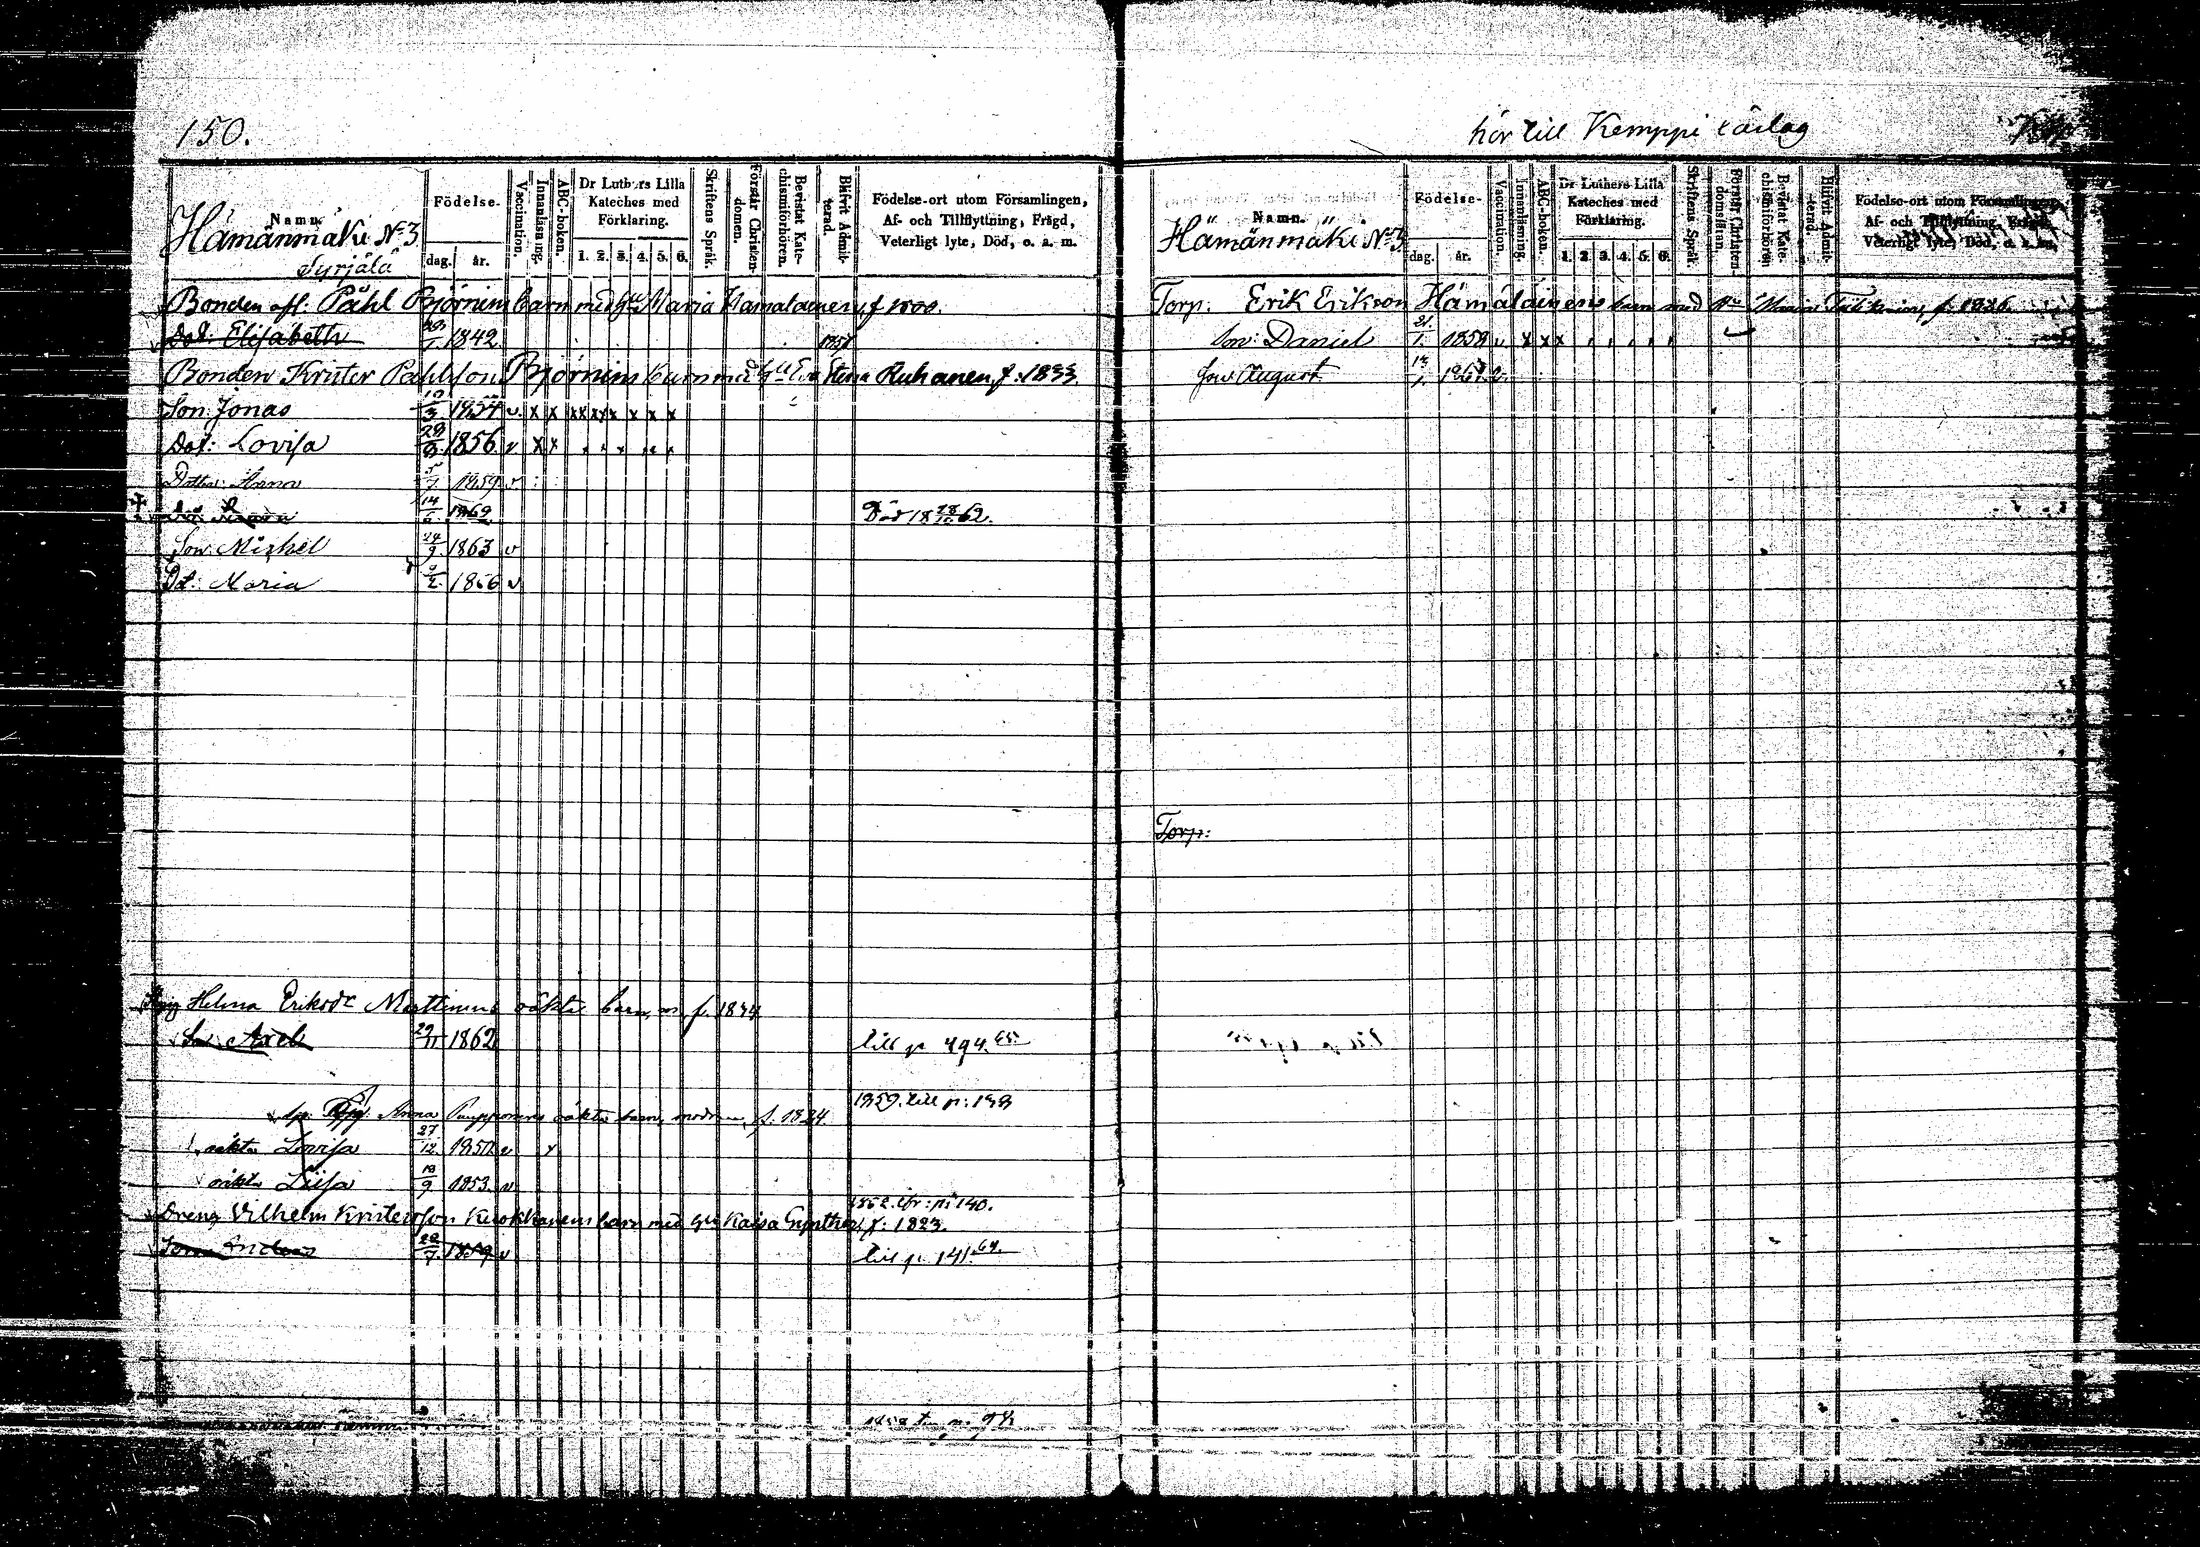 150.
Namn.
Hämänmäki No 3
Syrjälä
Födelse-
dag.
år.
Vaccination.
Innanläsning.
ABC-boken.
Dr Luthers Lilla
Kateches med
Förklaring.
1. 2. 3. 4. 5. 6.
Skriftens Språk.
Förstår Christen-
domen.
Bevistat Kate-
chismiförhören.
Blifvit Admit-
terad.
Födelse-ort utom Församlingen,
Af- och Tillflyttning, Frägd,
Veterligt lyte, Död, o. a. m.
Bonden afl. Påhl Björninens barn med Maria Hämäläinen, f 1800.
Dot. Elisabeth 1842
Bonden Krister Påhlsson Björninens barn med Eva Stina Ruhanen, f. 1833.
Son Jonas 10/3 1854 v. x x
Dot: Lovisa 1856 v x x
Dotter Anna 5/7 1859 v
14 Död 18 62.
Son Michel 24/9 1863 v
Dot: Maria 1866 v
Helena Eriksdr Marttinens oäkta barn, f. 1834
Son Axel 29/11 1862 till p 494. 65.
Anna Pupponens oäkta barn, modren f. 1824 1859. till p: 138
oäkta Lovisa 27/12 1850 v
oäkta Liisa 18/9 1853. v
1862. fr: p: 140.
Dreng Vilhelm Kristersson Kuokkanens barn med Kaisa Gynther, f: 1823.
Son Anders 1859 v till p. 141. 64.
hör till Kemppi lärlag
Namn.
Hämänmäki No 3
Födelse-
dag.
år.
Vaccination.
Innanläsning.
ABC-boken.
Dr Luthers Lilla
Kateches med
Förklaring.
1. 2. 3. 4. 5. 6.
Skriftens Språk.
Förstår Christen-
domsläran.
Bevistat Kate-
chismiförhören
Blifvit Admit-
terad.
Födelse-ort utom Församlingen,
Af- och Tillflyttning, Frägd,
Veterligt lyte, Död, o. a. m.
Torp. Erik Erikson Hämäläinens barn med Maria f. 1826.
Son: Daniel 21/1. 1858 v x x x
Son August v.
Torp: